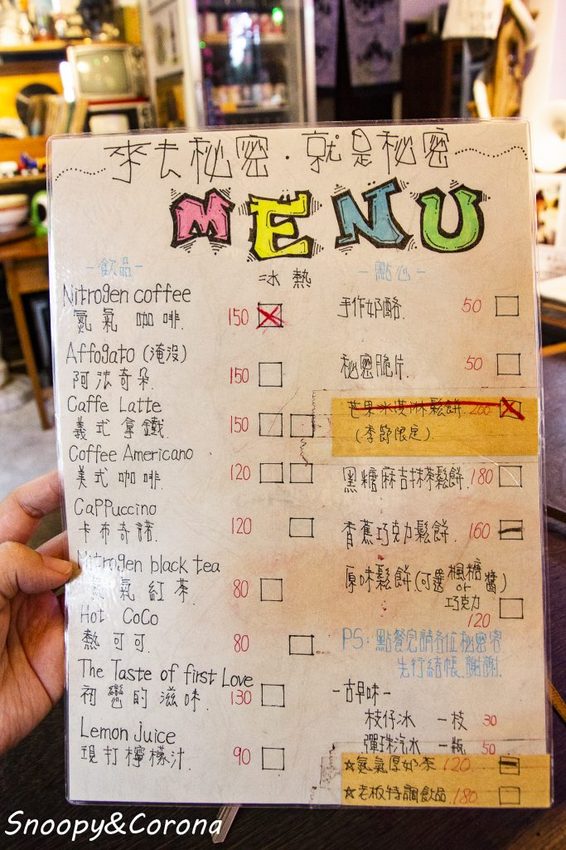 來去秘密·就是秘密
MENU
-飲品-
冰 熱
Nitrogen coffee
氮氣 咖啡. 150
Affogato (淹沒)
阿法奇朵. 150
Caffe Latte
義式拿鐵 150
Coffee Americano
美式咖啡. 120
Cappuccino
卡布奇諾. 120
Nitrogen black tea
氣紅茶. 80
Hot CoCo
熱可可. 80
The Taste of first Love
初戀的滋味. 130
Lemon Juice
現打檸檬汁. 90
-點心-
手作奶酪. 50
秘密脆片. 50
芒果冰淇淋鬆餅. 200
(季節限定)
黑糖麻吉抹茶鬆餅. 180
香蕉巧克力鬆餅. 160
原味鬆餅(可選楓糖醬)
or
巧克力
120
PS:點餐完請各位秘密客
先行結帳.謝謝.
-古早味-
枝仔冰 一枝 30
彈珠汽水 一瓶 50
☆氮氣厚奶茶 120
☆老板特調飲品 180
Snoopy&Corona